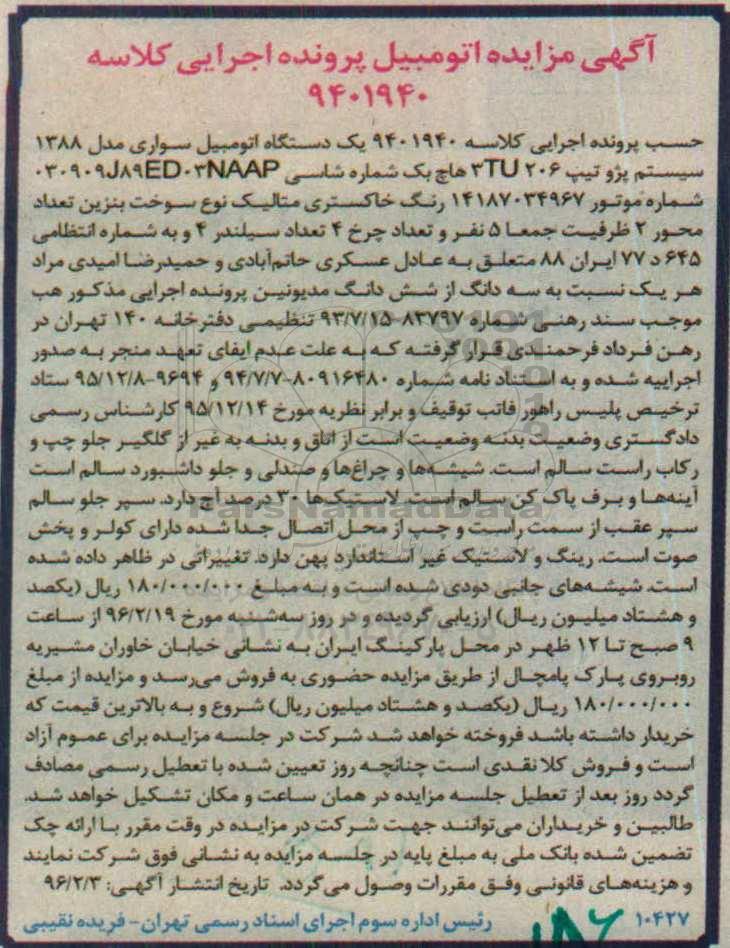 آگهی مزایده اتومبیل پرونده اجرایی کلاسه
۹۴۰۱۹۴۰
حسب پرونده اجرایی کلاسه ۹۴۰۱۹۴۰ یک دستگاه اتومبیل سواری مدل ۱۳۸۸
سیستم پژو تیپ ۲۰۶ ۳TU هاچ بک شماره شاسی ۰۳۰۹۰۹J۸۹ED۰۳NAAP
شماره موتور ۱۴۱۸۷۰۳۴۹۶۷ رنگ خاکستری متالیک نوع سوخت بنزین تعداد
محور ۲ ظرفیت جمعا ۵ نفر و تعداد چرخ ۴ تعداد سیلندر ۴ و به شماره انتظامی
۶۴۵ د ۷۷ ایران ۸۸ متعلق به عادل عسکری حاتم‌آبادی و حمیدرضا امیدی مراد
هر یک نسبت به سه دانگ از شش دانگ مدیونین پرونده اجرایی مذکور هب
موجب سند رهنی شماره ۸۳۷۹۷-۹۳/۷/۱۵ تنظیمی دفترخانه ۱۴۰ تهران در
رهن فرداد فرحمندی قرار گرفته که به علت عدم ایفای تعهد منجر به صدور
اجراییه شده و به استناد نامه شماره ۸۰۹۱۶۴۸۰-۹۴/۷/۷ و ۹۶۹۴-۹۵/۱۲/۸ ستاد
ترخیص پلیس راهور فاتب توقیف و برابر نظریه مورخ ۹۵/۱۲/۱۴ کارشناس رسمی
دادگستری وضعیت بدنه وضعیت است از اتاق و بدنه به غیر از گلگیر جلو چپ و
رکاب راست سالم است. شیشه‌ها و چراغ‌ها و صندلی و جلو داشبورد سالم است
آینه‌ها و برف پاک کن سالم است. لاستیک‌ها ۳۰ درصد آج دارد. سپر جلو سالم
سپر عقب از سمت راست و چپ از محل اتصال جدا شده دارای کولر و پخش
صوت است. رینگ و لاستیک غیر استاندارد پهن دارد. تغییراتی در ظاهر داده شده
است. شیشه‌های جانبی دودی شده است و به مبلغ ۱۸۰/۰۰۰/۰۰۰ ریال (یکصد
و هشتاد میلیون ریال) ارزیابی گردیده و در روز سه‌شنبه مورخ ۹۶/۲/۱۹ از ساعت
۹ صبح تا ۱۲ ظهر در محل پارکینگ ایران به نشانی خیابان خاوران مشیریه
روبروی پارک پامچال از طریق مزایده حضوری به فروش می‌رسد و مزایده از مبلغ
۱۸۰/۰۰۰/۰۰۰ ریال (یکصد و هشتاد میلیون ریال) شروع و به بالاترین قیمت که
خریدار داشته باشد فروخته خواهد شد شرکت در جلسه مزایده برای عموم آزاد
است و فروش کلا نقدی است چنانچه روز تعیین شده با تعطیل رسمی مصادف
گردد روز بعد از تعطیل جلسه مزایده در همان ساعت و مکان تشکیل خواهد شد.
طالبین و خریداران می‌توانند جهت شرکت در مزایده در وقت مقرر با ارائه چک
تضمین شده بانک ملی به مبلغ پایه در جلسه مزایده به نشانی فوق شرکت نمایند
و هزینه‌های قانونی وفق مقررات وصول می‌گردد. تاریخ انتشار آگهی: ۹۶/۲/۳
۱۰۴۲۷ رئیس اداره سوم اجرای اسناد رسمی تهران- فریده نقیبی
ParsNamadData